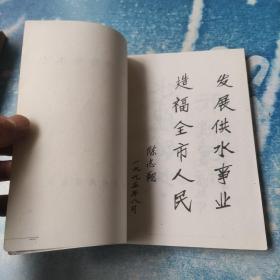 发展供水事业
造福全市人民
陈志
一九九五年八月